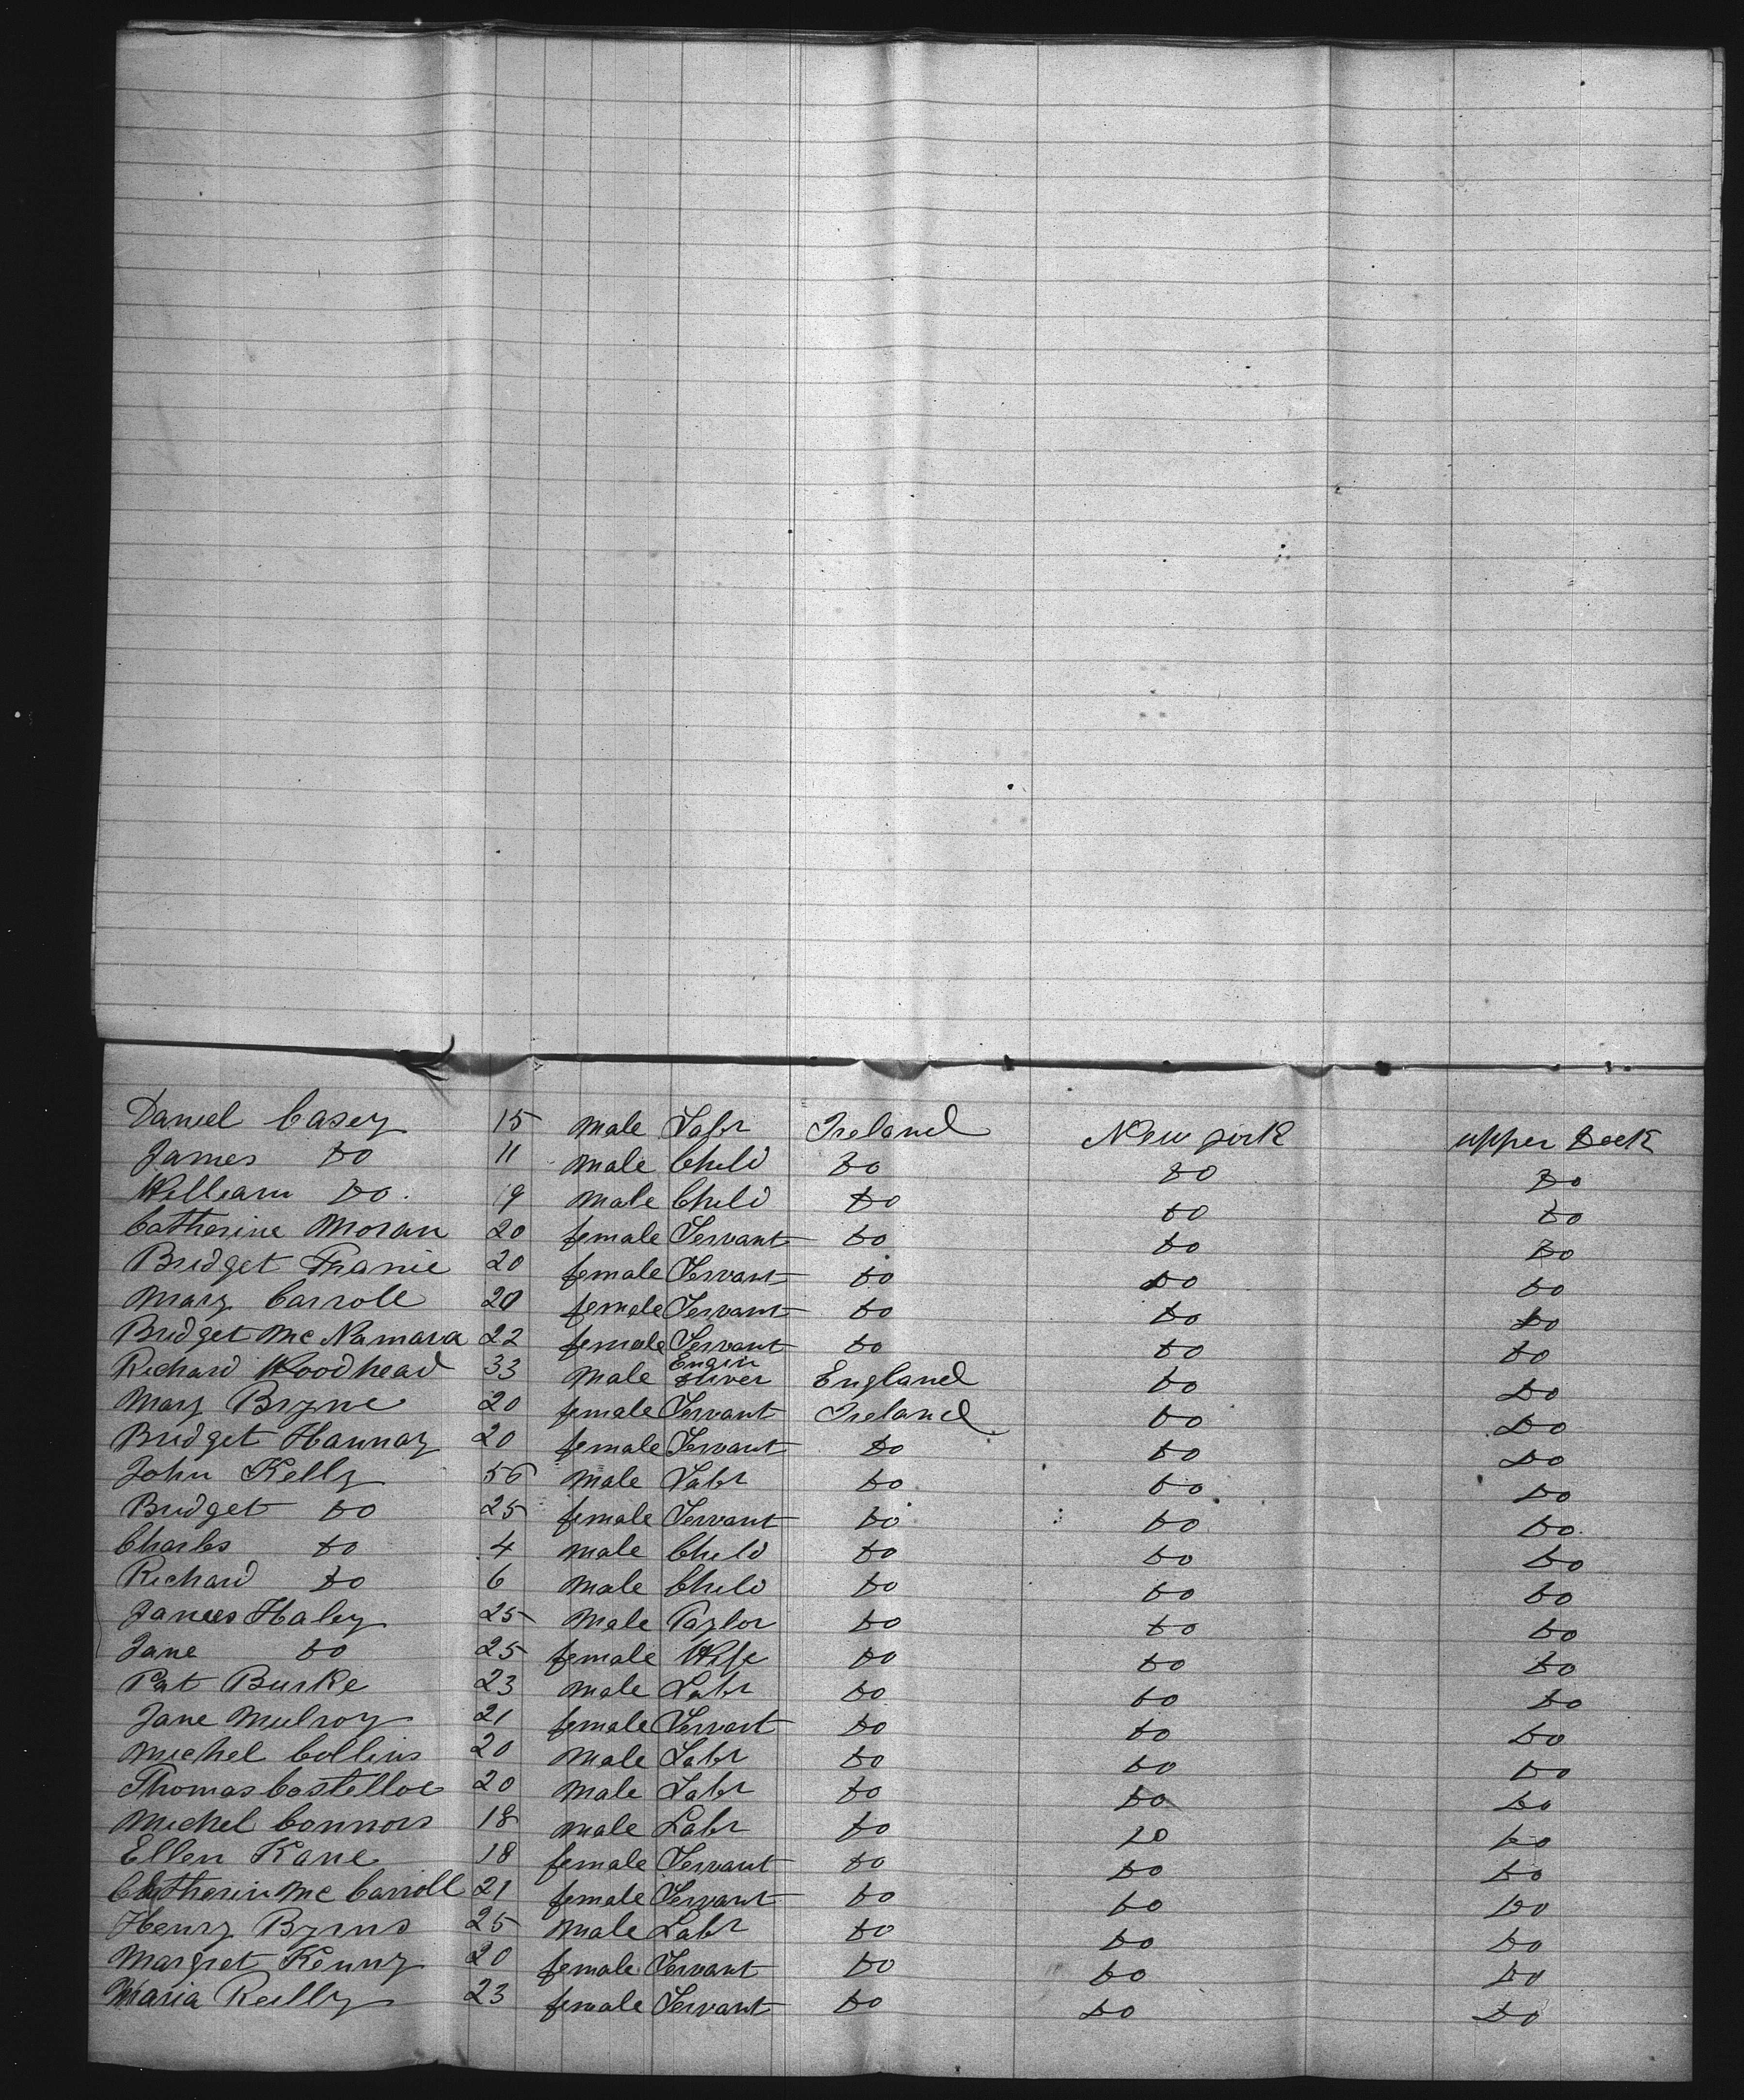 Daniel Casey 15 male Labr Ireland New york upper Deck
James Do 11 male Child Do Do Do
William Do. 19 male Child Do Do Do
Catherine Moran 20 female Servant Do Do Do
Bridget 20 female Servant Do Do Do
Mary Carroll 20 female Servant Do Do Do
Bridget Mc Namara 22 female Servant Do Do Do
Richard Woodhead 33 male Engin Driver England Do Do
Mary Bryne 20 female Servant Ireland Do Do
Bridget Hannay 20 female Servant Do Do Do
John Kelly 56 male Labr Do Do Do
Bridget Do 25 female Servant Do Do Do
Charles Do 4 male Child Do Do Do
Richard Do 6 male Child Do Do Do
James Haley 25 male Taylor Do Do Do
Jane Do 25 female Wife Do Do Do
Pat Burke 23 male Labr Do Do Do
Jane Mulroy 21 female Servant Do Do Do
Michel Collins 20 male Labr Do Do Do
Thomas Costelloe 20 male Labr Do Do Do
Michel Connors 18 male Labr Do Do Do
Ellen Kane 18 female Servant Do Do Do
Catherin Mc Carroll 21 female Servant Do Do Do
Henry Byrns 25 male Labr Do Do Do
Margret Kenny 20 female Servant Do Do Do
Maria Reilly 23 female Servant Do Do Do